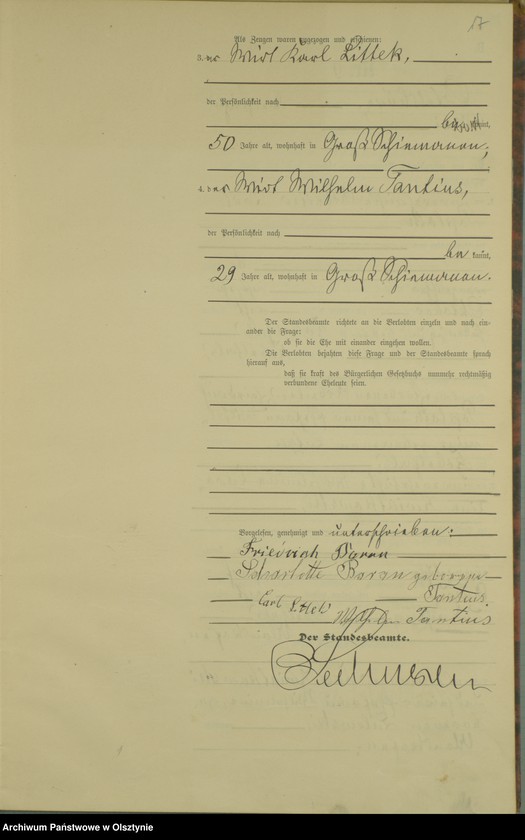 17
Als Zeugen waren zugezogen und erschienen:
3. der Wirt Karl Littek,
der Persönlichkeit nach
bekannt,
50 Jahre alt, wohnhaft in Groß Schiemanen;
4. der Wirt Wilhelm Tantius,
der Persönlichkeit nach
be kannt,
29 Jahre alt, wohnhaft in Groß Schiemanen.
Der Standesbeamte richtete an die Verlobten einzeln und nach ein-
ander die Frage:
ob sie die Ehe mit einander eingehen wollen.
Die Verlobten bejahten diese Frage und der Standesbeamte sprach
hierauf aus,
daß sie kraft des Bürgerlichen Gesetzbuchs nunmehr rechtmäßig
verbundene Eheleute seien.
Vorgelesen, genehmigt und unterschrieben:
Friedrich Baran
Scharlotte Baran geborene
Tantius
Carl Littek
Wilhelm Tantius
Der Standesbeamte.
Archiwum Państwowe w Olsztynie